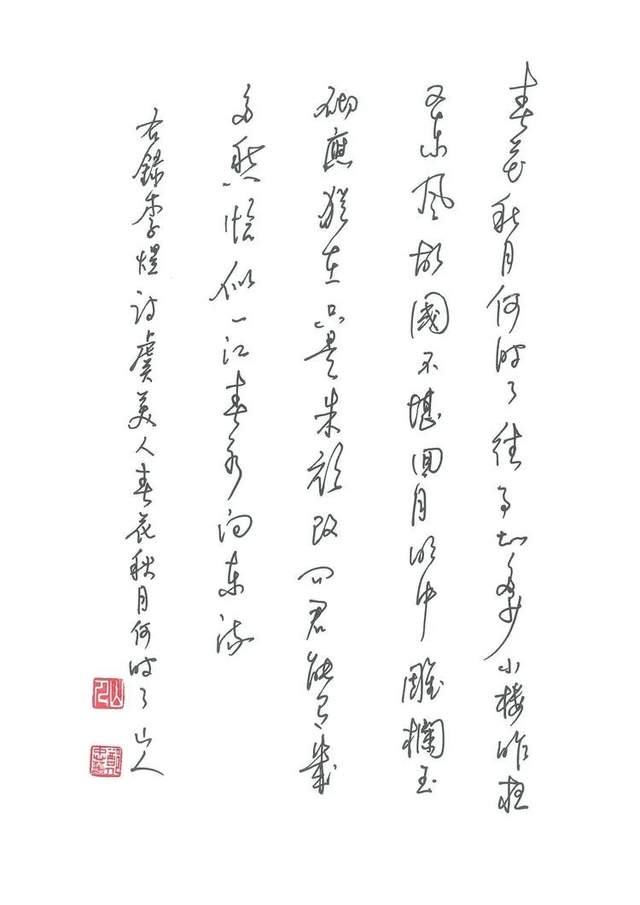 春花秋月何时了往事知多少小楼昨夜
又东风故國不堪回月明中雕欄玉
砌應猶在只是朱颜改问君能有幾
多愁恰似一江春水向东流
右録李煜诗虞美人春花秋月何时了 山人
山人